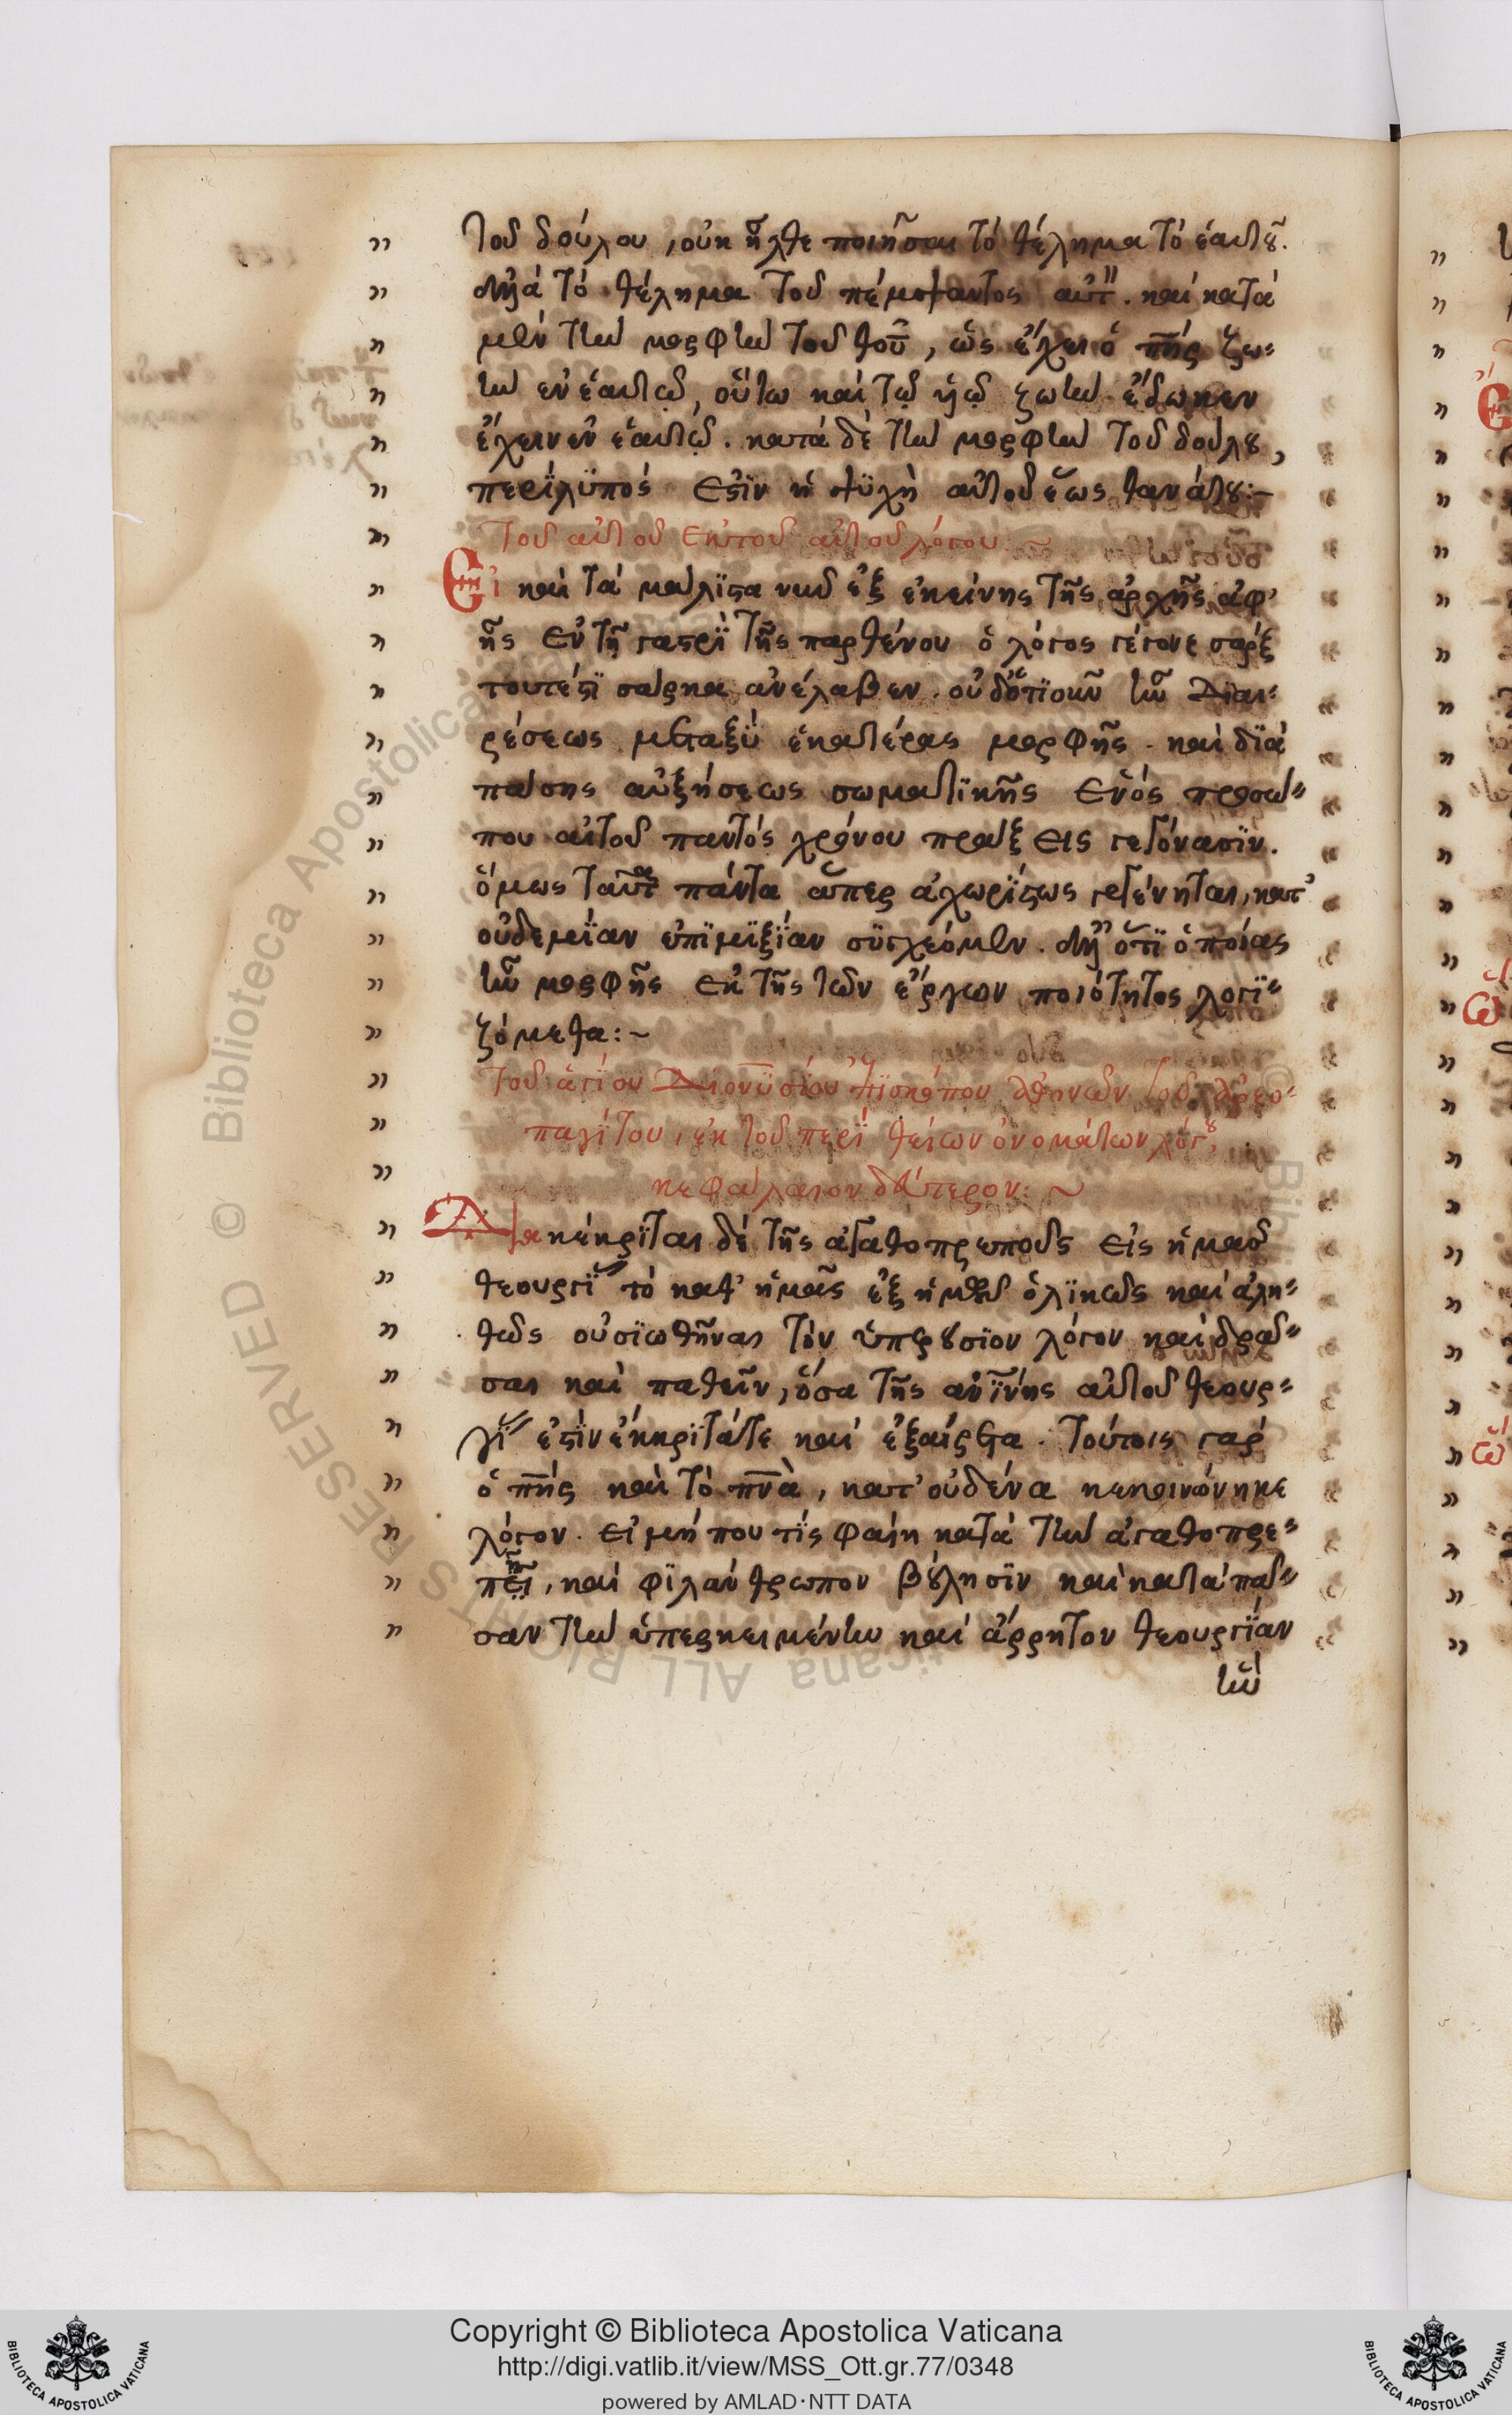 τοῦ δούλου, οὐκ ἦλθε ποιῆσαι τὸ θέλημα τὸ ἑαυτοῦ.
ἀλλὰ τὸ θέλημα τοῦ πέμψαντος αὐτ". καὶ κατὰ
μὲν τὴν μορφὴν τοῦ θοῦ, ὡς ἔχει ὁ πης ζω-
ὴν ἐν ἑαυτῷ, οὕτω καὶ τῷ υἱῷ ζωὴν ἔδωκεν
ἔχειν ἐν ἑαυτῷ. κατὰ δὲ τὴν μορφὴν τοῦ δούλου,
περίλϋπός ἐστϊν ἡ ψϋχὴ αὐτοῦ ἕως θανάτου:~
Τοῦ αὐτοῦ ἐκ τοῦ αὐτοῦ λόγου ~
Εἰ καὶ τὰ μάλϊστα νῦν ἐξ ἐκείνης τῆς ἀρχῆς ἀφ'
ἧς ἐν τῇ γαστρὶ τῆς παρθένου ὁ λόγος γέγονε σάρξ
τουτέστϊ σάρκα ἀνέλαβεν. οὐδότϊοῦν ἦν διαι-
ρέσεως μεταξὺ ἑκατέρας μορφῆς. καὶ δϊὰ
πάσης αὐξήσεως σωματϊκῆς ἑνὸς προσώ-
που αὐτοῦ παντὸς χρόνου πράξεις γεγόνασϊν.
ὅμως ταῦτα πάντα ἅπερ ἀχωρίστως γεγένηται, κατ'
οὐδεμΐαν ἐπϊμϊξΐαν σϋγχέομεν. ἀλλ' ὅτϊ ὁποίας
ἦν μορφῆς ἐκ τῆς τῶν ἔργων ποιότητος λογϊ-
ζόμεθα:~
Τοῦ ἁγΐου Διονϋσΐου ἐπϊσκόπου ἀθηνῶν τοῦ ἀρεο-
παγΐτου, ἐκ τοῦ περὶ θείων ὀνομάτων λόγου,
κεφάλαιον δεύτερον: ~
Διακέκρϊται δὲ τῆς ἀγαθοπρεποῦς εἰς ἡμᾶς
θεουργϊ´´ τὸ καθ' ἡμᾶς ἐξ ἡμῶν ὁλϊκῶς καὶ ἀλη-
θῶς οὐσϊωθῆναι τὸν ὑπερούσϊον λόγον καὶ δρᾶ-
σαι καὶ παθεῖν, ὅσα τῆς ἀνϊνης αὐτοῦ θεουρ-
γϊ´´ ἐστὶν ἔκκρϊτά τε καὶ ἐξαίρετα. τούτοις γὰρ
ὁ πης καὶ τὸ πνα, κατ' οὐδένα κεκοινώνηκε
λόγον. εἰ μή που τὶς φαίη κατὰ τὴν ἀγαθοπρε-
πῆ, καὶ φϊλάνθρωπον βούλησϊν καὶ κατὰ πᾶ-
σαν τὴν ὑπερκειμένην καὶ ἄρρητον θεουργϊαν
ἣν
Copyright © Biblioteca Apostolica Vaticana
http://digi.vatlib.it/view/MSS_Ott.gr.77/0348
powered by AMLAD·NTT DATA